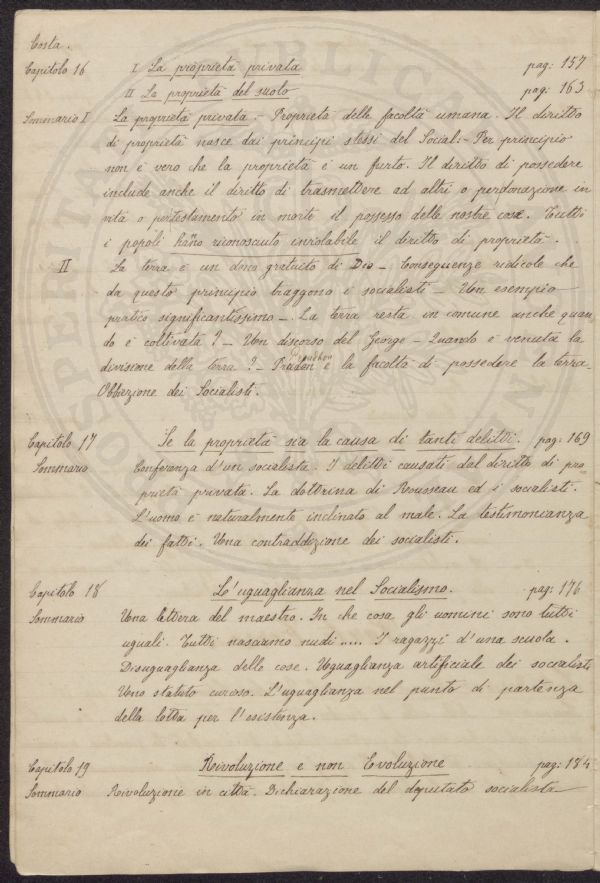 Costa.
Capitolo 16 I La proprietà privata pag: 157
II La proprietà del suolo pag: 163
Sommario I La proprietà privata - Proprietà delle facoltà umana. Il diritto
di proprietà nasce dai principi stessi del Social:- Per principio
non è vero che la proprietà è un furto. Il diritto di possedere
include anche il diritto di trasmettere ad altri o per donazione in
vita o per testamento in morte il possesso delle nostre cose. Tutti
i popoli hanno riconosciuto inviolabile il diritto di proprietà.
II La terra è un dono gratuito di Dio - Conseguenze ridicole che
da questo principio traggono i socialisti - Un esempio
pratico significantissimo - La terra resta in comune anche quan-
do è coltivata? - Un discorso del George - Quando è venuta la
divisione della terra? - Prudon Proudhon e la facoltà di possedere la terra.
Obbiezione dei Socialisti.
Capitolo 17 Se la proprietà sia la causa di tanti delitti. pag: 169
Sommario Conferenza d'un socialista. I delitti causati dal diritto di pro-
prietà privata. La dottrina di Rousseau ed i socialisti.
L'uomo è naturalmente inclinato al male. La testimonianza
dei fatti. Una contraddizione dei socialisti.
Capitolo 18 L'uguaglianza nel Socialismo. pag: 176
Sommario Una lettera del maestro. In che cosa gli uomini sono tutti
uguali. Tutti nasciamo nudi..... I ragazzi d'una scuola.
Disuguaglianza delle cose. Uguaglianza artificiale dei socialisti
Uno statuto curioso. L'uguaglianza nel punto di partenza
della lotta per l'esistenza.
Capitolo 19 Rivoluzione e non Evoluzione pag: 184
Sommario Rivoluzione in città. Dichiarazione del deputato socialista